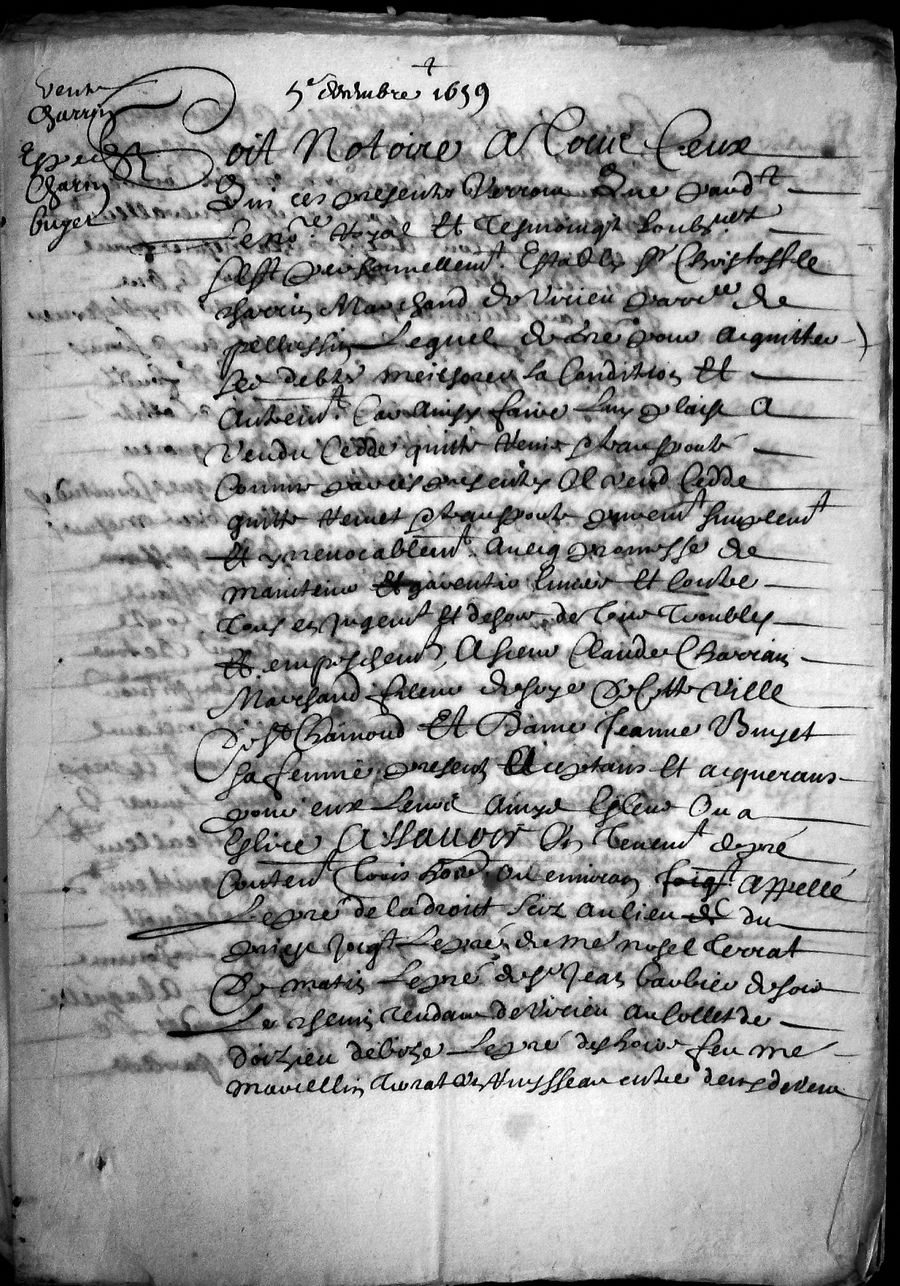 vente
Charrin
Charin
buget
5e decembre 1659
Soit Notoire A Tous Ceux
Qui ces presentes Verront Que pardt
Le nore Royal Et Tesmoingt soubznt
sest personnellemt Establÿ sr Christofle
Charrin Marchand de Virieu parre de
pellussin Lequel de gré pour acquitter
ses debtes meilhorer sa Condition Et
Autremt Car Ainsy faire luy plaist A
Vendu Cedde quitte Remis & transporté
Comme par ces presentes Il Vend Cedde
quitte Remet & transporte puremt simplemt
Et yrrevocablemt Avecq promesse de
maintenir garentir Envers Et Contre
Tous en Jugemt Et dehors de Tous Troubles
Et empeschemt, A sieur Claude Charrin
Marchand fileur de soye De Cette Ville
De St Chamond Et Dame Jeanne Buget
sa femme presents Acceptans Et acquerans
pour eux Leurs Amys Esleus Ou a
Eslire Assavoir Un Tenemt de pré
Content Trois hom. ou environ appellé
Le pré de la droit Sciz au lieu du
joigt Le pré de Me noyel Terrat
De matin Le pré de sr Jean barbier de soir
Le chemin Tendant de Virieu au Collet de
doizieu de bize Le pré des hoirs feu me
Marcellin Terrat Un Ruysseau entre deux de vent